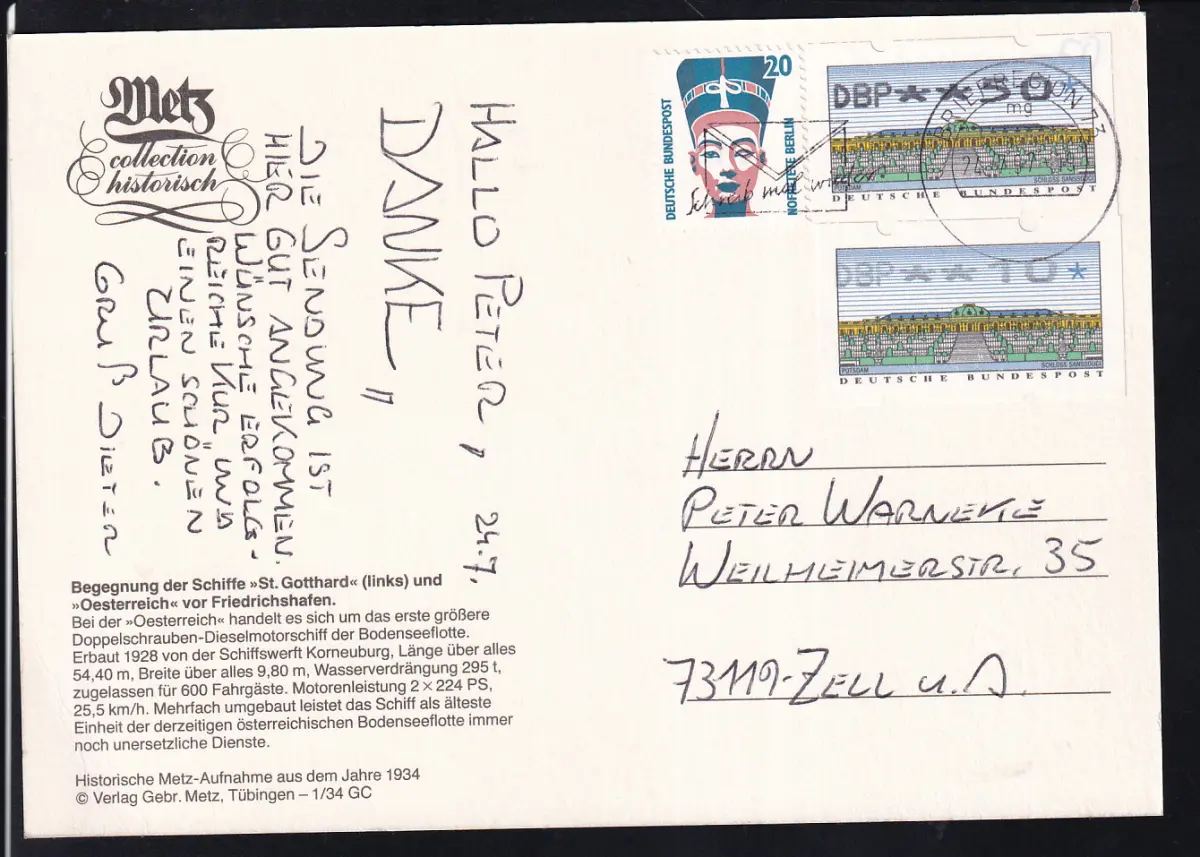 Metz
collection
historisch
HALLO PETER, 24.7.
DANKE,,
DIE SENDUNG IST
HIER GUT ANGEKOMMEN.
WÜNSCHE ERFOLG-
REICHE KUR UND
EINEN SCHÖNEN
URLAUB.
GRUß DIETER
Begegnung der Schiffe »St. Gotthard« (links) und
»Oesterreich« vor Friedrichshafen.
Bei der »Oesterreich« handelt es sich um das erste größere
Doppelschrauben-Dieselmotorschiff der Bodenseeflotte.
Erbaut 1928 von der Schiffswerft Korneuburg, Länge über alles
54,40 m, Breite über alles 9,80 m, Wasserverdrängung 295 t,
zugelassen für 600 Fahrgäste. Motorenleistung 2 × 224 PS,
25,5 km/h. Mehrfach umgebaut leistet das Schiff als älteste
Einheit der derzeitigen österreichischen Bodenseeflotte immer
noch unersetzliche Dienste.
Historische Metz-Aufnahme aus dem Jahre 1934
© Verlag Gebr. Metz, Tübingen – 1/34 GC
DEUTSCHE BUNDESPOST
20
NOFRETETE BERLIN
Schreib mal wieder
DBP ** 50 *
POTSDAM SCHLOSS SANSSOUCI
DEUTSCHE BUNDESPOST
BRIEFREGION 73
mg
DBP ** 10 *
POTSDAM SCHLOSS SANSSOUCI
DEUTSCHE BUNDESPOST
HERRN
PETER WARNEKE
WEILHEIMERSTR. 35
73119-ZELL u. A.